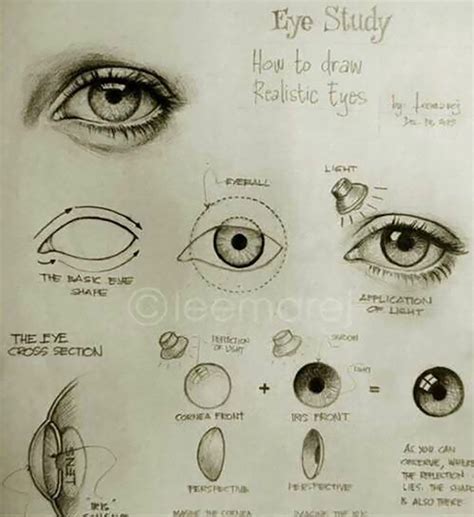 Eye Study
How to draw
Realistic Eyes
by: leemarej
EYEBALL
LIGHT
THE BASIC EYE
SHAPE
APPLICATION
OF LIGHT
©leemarej
THE EYE
CROSS SECTION
REFLECTION
OF LIGHT
SHADOW
LIGHT
+
=
CORNEA FRONT
IRIS FRONT
LENS
PERSPECTIVE
PERSPECTIVE
AS YOU CAN
OBSERVE, WHERE
THE REFLECTION
LIES. THE SHADE
IS ALSO THERE
"IRIS"
IMAGINE THE CORNEA
IMAGINE THE IRIS